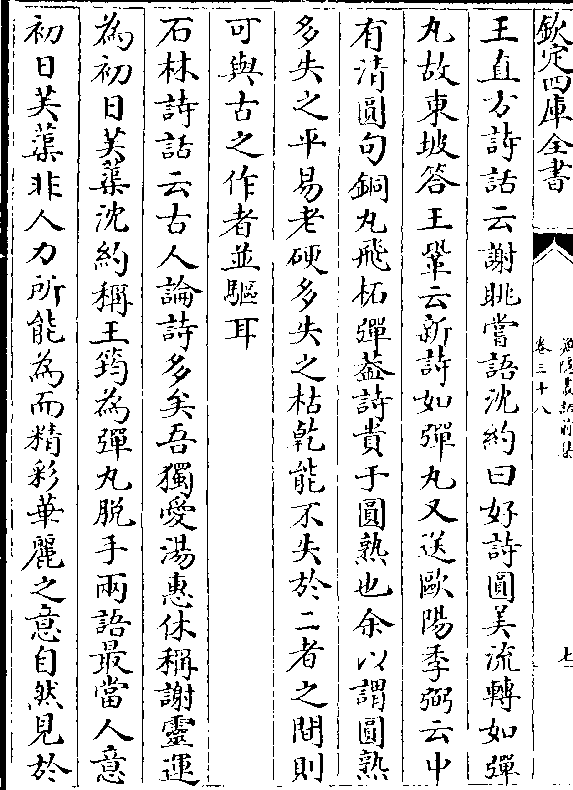 欽定四庫全書
漁隱叢話前集
卷三十八
七
王直方詩話云謝朓嘗語沈約曰好詩圓美流轉如彈
丸故東坡答王鞏云新詩如彈丸又送歐陽季弼云中
有清圓句銅丸飛柘彈葢詩貴于圓熟也余以謂圓熟
多失之平易老硬多失之枯乾能不失於二者之間則
可與古之作者並驅耳
石林詩話云古人論詩多矣吾獨愛湯惠休稱謝靈運
為初日芙蕖沈約稱王筠為彈丸脱手兩語最當人意
初日芙蕖非人力所能為而精彩華麗之意自然見於